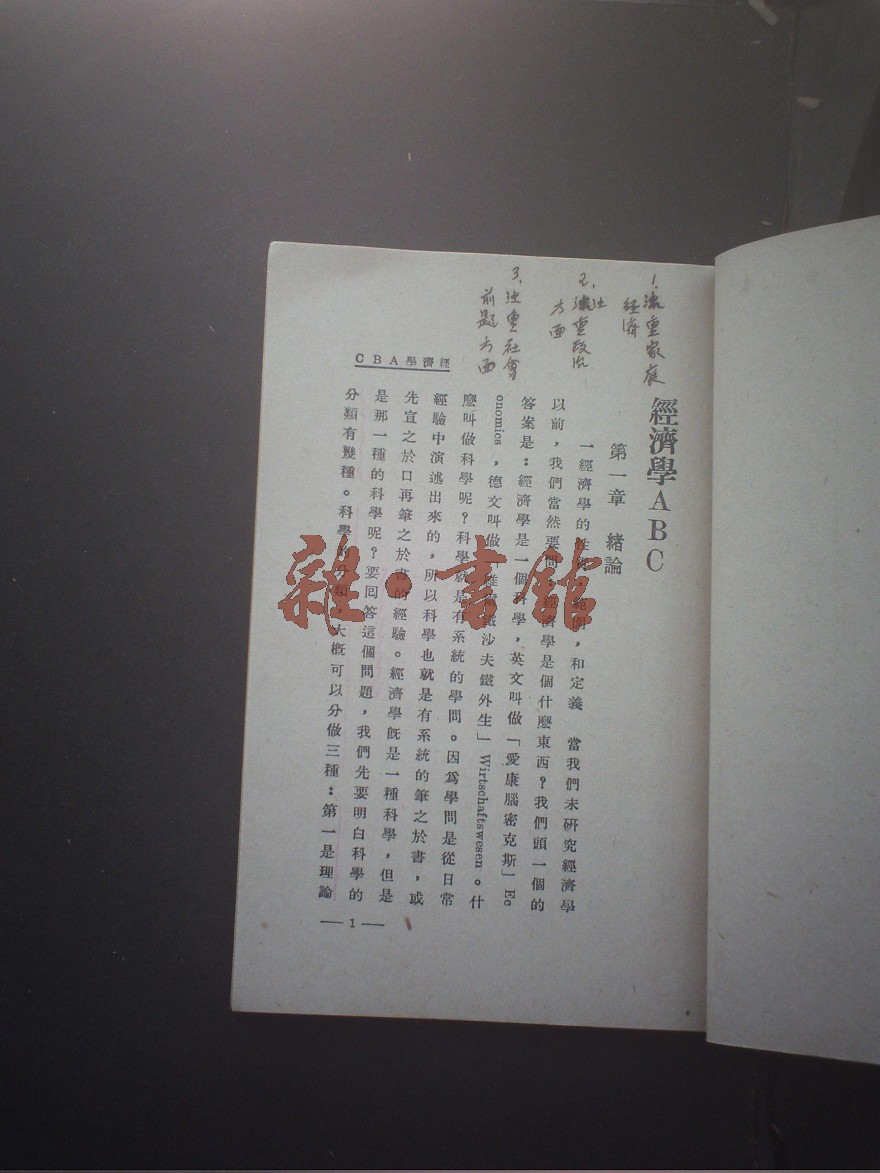 1. 注重家庭
經濟
2. 注重政治
方面
3. 注重社會
前題方面
經濟學ABC
經濟學ABC
第一章 緒論
一經濟學的性質，範圍，和定義 當我們未研究經濟學
以前，我們當然要問：經濟學是個什麼東西？我們頭一個的
答案是：經濟學是一個科學，英文叫做「愛康腦密克斯」Ec
onomics，德文叫做「維爾鐵沙夫鐵外生」Wirtschaftswesen。什
麼叫做科學呢？科學就是有系統的學問。因爲學問是從日常
經驗中演述出來的，所以科學也就是有系統的筆之於書，或
先宣之於口再筆之於書的經驗。經濟學旣是一種科學，但是
是那一種的科學呢？要囘答這個問題，我們先要明白科學的
分類有幾種。科學的分類，大概可以分做三種：第一是理論
— 1 —
雜·書館